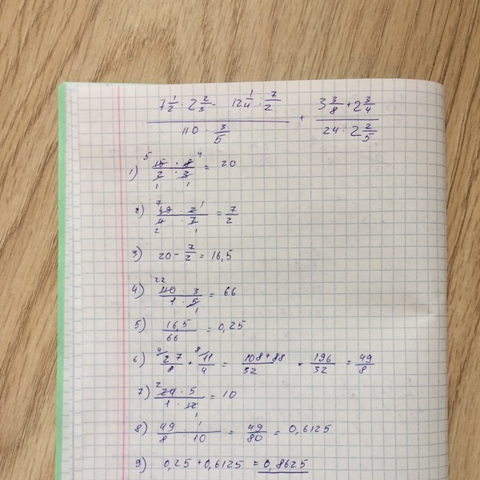 (7 1/2 · 2 2/3 - 12 1/4 · 2/7) / (110 · 3/5) + (3 3/8 + 2 3/4) / (24 · 2 2/5)
1) (15 · 8) / (2 · 3) = 20
2) (49 · 2) / (4 · 7) = 7/2
3) 20 - 7/2 = 16,5
4) (110 · 3) / (1 · 5) = 66
5) 16,5 / 66 = 0,25
6) 27/8 + 11/4 = (108 + 88) / 32 = 196/32 = 49/8
7) (24 · 5) / (1 · 12) = 10
8) (49 · 1) / (8 · 10) = 49/80 = 0,6125
9) 0,25 + 0,6125 = 0,8625